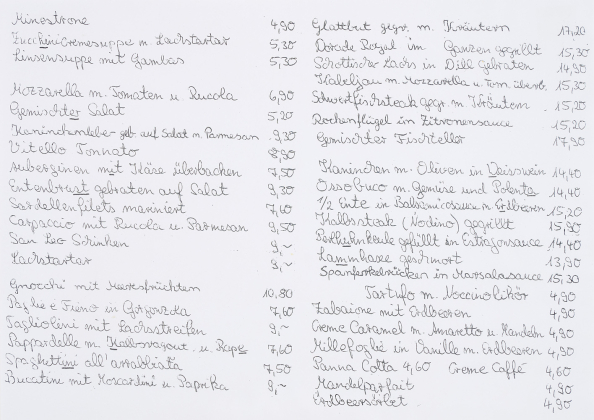 Minestrone 4,90
Zucchinicremesuppe m. Lachstartar 5,30
Linsensuppe mit Gambas 5,30
Mozzarella m. Tomaten u. Rucola 6,90
Gemischter Salat 5,20
Kaninchenleber geb. auf Salat m. Parmesan 9,30
Vitello Tonnato 8,90
Auberginen mit Käse überbacken 7,50
Entenbrust gebraten auf Salat 9,30
Sardellenfilets mariniert 7,60
Carpaccio mit Rucola u. Parmesan 9,50
San Leo Schinken 9,~
Lachstartar 9,~
Gnocchi mit Meeresfrüchten 10,80
Paglia e Fieno in Gorgonzola 7,60
Tagliolini mit Lachsstreifen 9,~
Pappardelle m. Kalbsragout u. 7,60
Spaghettini all'arrabbiata 7,50
Bucatini mit Moscardini u. Paprika 9,~
Glattbut gegr. m. Kräutern 17,20
Dorade Royal im Ganzen gegrillt 15,30
Schottischer Lachs in Dill gebraten 14,90
Kabeljau m. Mozzarella u. Tom. überb. 15,30
Schwertfischsteak gegr. m. Kräutern 15,20
Rochenflügel in Zitronensauce 15,20
Gemischter Fischteller 17,90
Kaninchen m. Oliven in Weisswein 14,40
Ossobuco m. Gemüse und Polenta 14,40
1/2 Ente in Balsamicosauce m. Erdbeeren 15,20
Kalbssteak (Nodino) gegrillt 15,90
Perlhuhnkeule gefüllt in Estragonsauce 14,40
Lammhaxe geschmort 13,90
Spanferkelrücken in Marsalasauce 15,30
Tartufo m. Noccinolikör 4,90
Zabaione mit Erdbeeren 4,90
Creme Caramel m. Amaretto u. Mandeln 4,90
Millefoglie in Vanille m. Erdbeeren 4,90
Panna Cotta 4,60 Creme Caffé 4,60
Mandelparfait 4,90
Erdbeersorbet 4,90